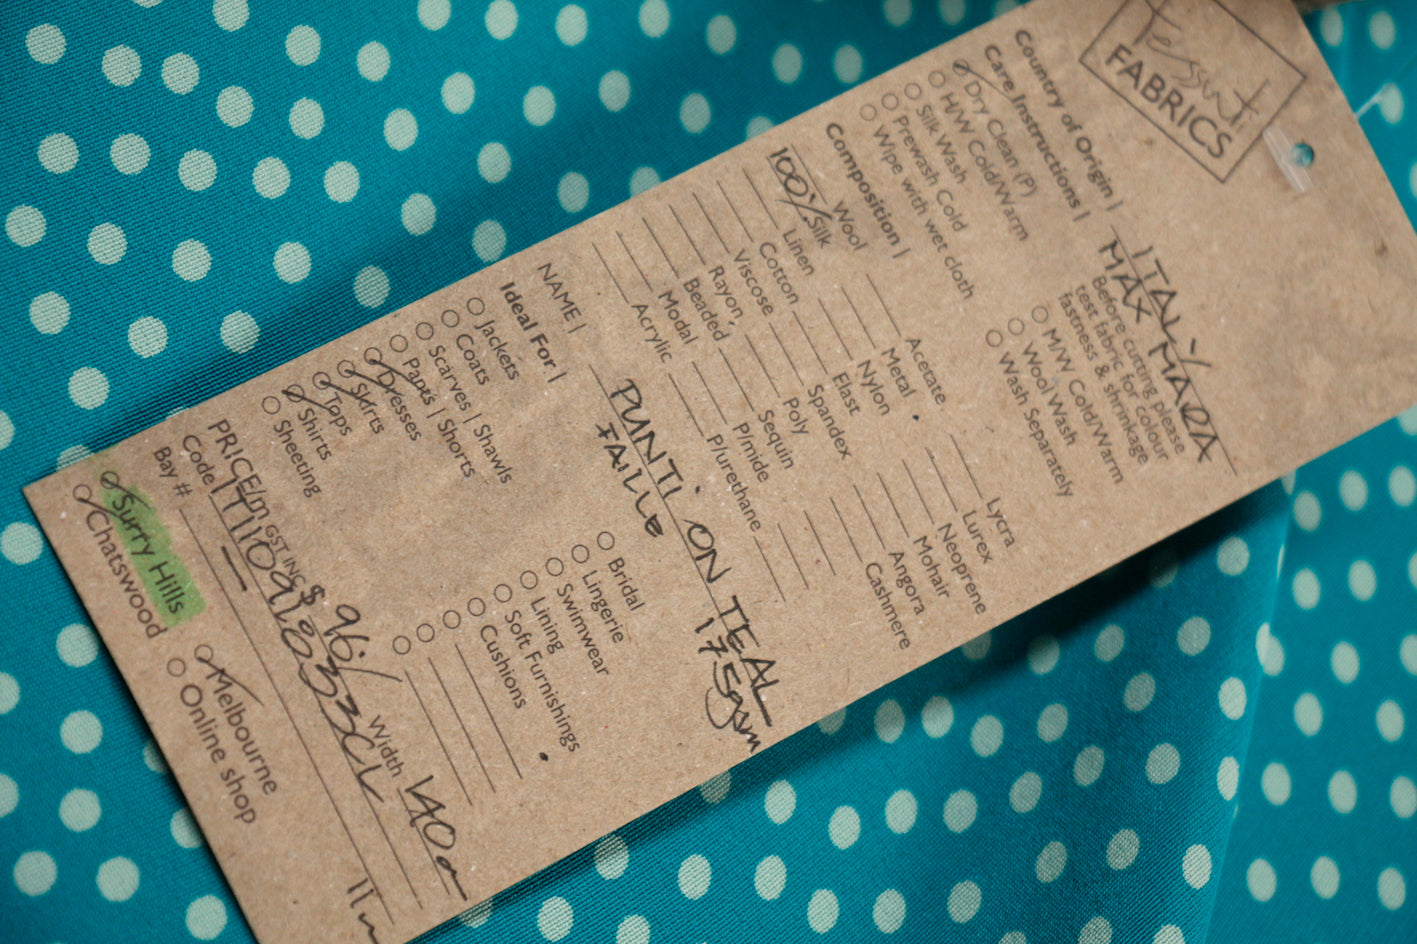 Tessuti
FABRICS
Country of Origin | ITALY/
MAX MARA
Care Instructions | Before cutting please
test fabric for colour
fastness & shrinkage
Dry Clean (P)
H/W Cold/Warm
Silk Wash
Prewash Cold
Wipe with wet cloth
M/W Cold/Warm
Wool Wash
Wash Separately
Composition |
Wool Acetate Lycra
100% Silk Metal Lurex
Linen Nylon Neoprene
Cotton Elast Mohair
Viscose Spandex Angora
Rayon Poly Cashmere
Beaded Sequin
Modal P/mide
Acrylic P/urethane
NAME | PUNTI ON TEAL
FAILLE 175gsm
Ideal For |
Jackets Bridal
Coats Lingerie
Scarves | Shawls Swimwear
Pants | Shorts Lining
Dresses Soft Furnishings
Skirts Cushions
Tops
Shirts
Sheeting
PRICE/m GST INC $ 96./ Width 140
Code
Bay # 11
Surry Hills Melbourne
Chatswood Online shop